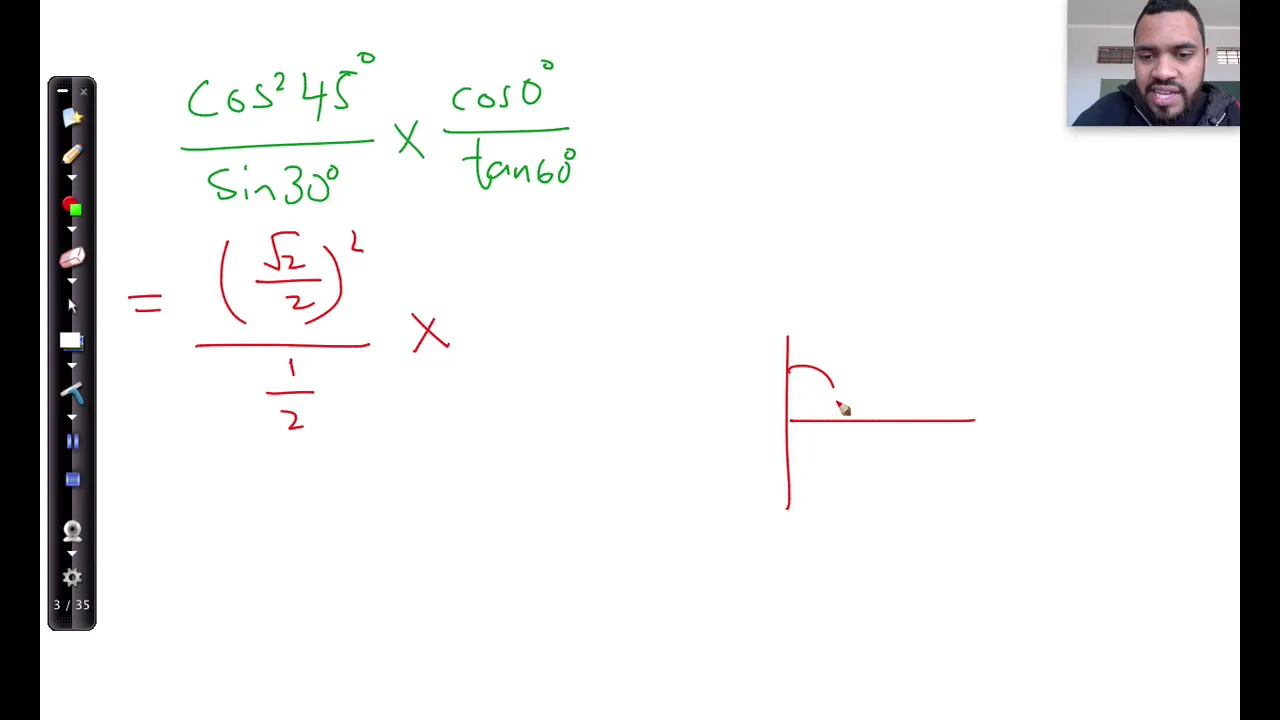 cos² 45° / sin 30° × cos 0° / tan 60°
= (√2 / 2)² / (1 / 2) ×
3 / 35